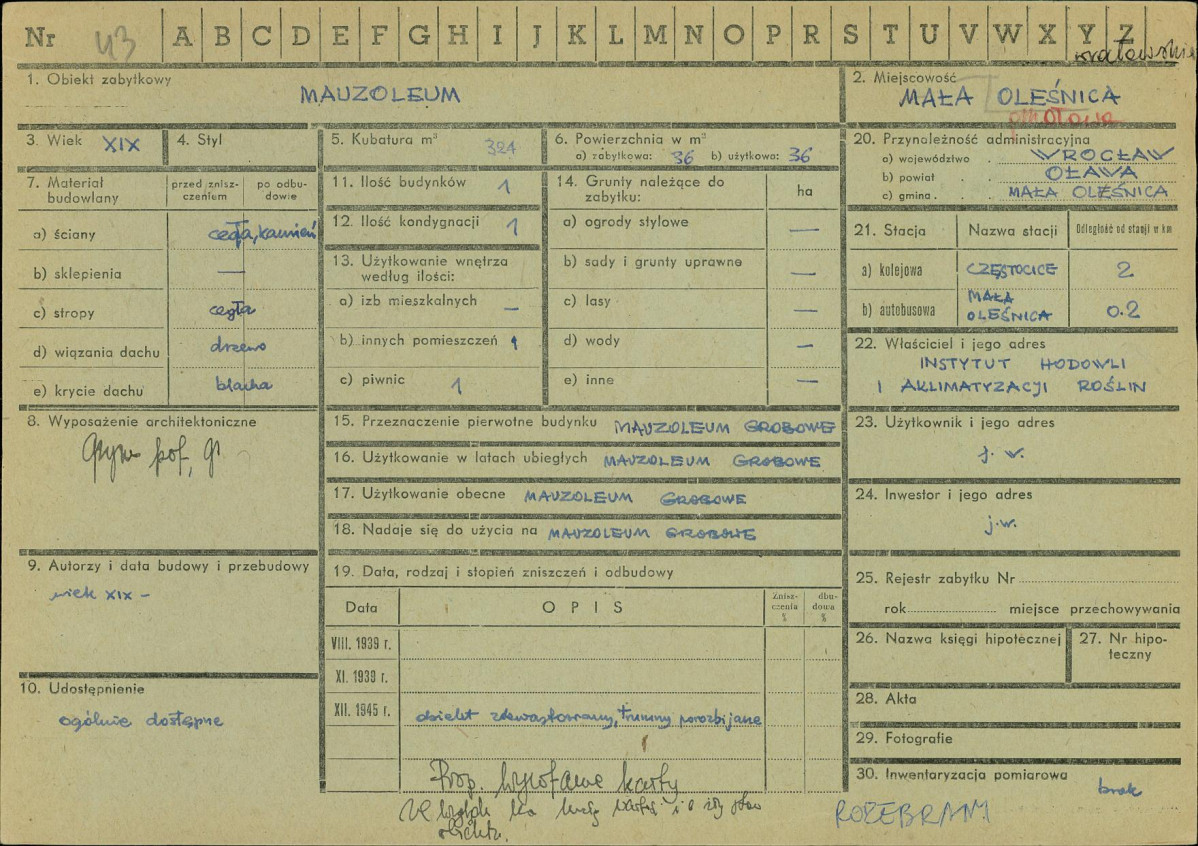 Nr 43 A B C D E F G H I J K L M N O P R S T U V W X Y Z
1. Obiekt zabytkowy
MAUZOLEUM
2. Miejscowość
MAŁA OLEŚNICA
3. Wiek XIX
4. Styl
5. Kubatura m³ 324
6. Powierzchnia w m²
a) zabytkowa: 36 b) użytkowa: 36
20. Przynależność administracyjna
a) województwo . WROCŁAW
b) powiat . . OŁAWA
c) gmina . . . MAŁA OLEŚNICA
7. Materiał budowlany
przed zniszczeniem
po odbudowie
a) ściany cegła, kamień
b) sklepienia —
c) stropy cegła
d) wiązania dachu drzewo
e) krycie dachu blacha
11. Ilość budynków 1
12. Ilość kondygnacji 1
13. Użytkowanie wnętrza
według ilości:
a) izb mieszkalnych —
b) innych pomieszczeń 1
c) piwnic 1
14. Grunty należące do
zabytku:
ha
a) ogrody stylowe —
b) sady i grunty uprawne —
c) lasy —
d) wody —
e) inne —
21. Stacja Nazwa stacji Odległość od stacji w km
a) kolejowa CZĘSTOCICE 2
b) autobusowa MAŁA
OLEŚNICA 0.2
22. Właściciel i jego adres
INSTYTUT HODOWLI
I AKLIMATYZACJI ROŚLIN
8. Wyposażenie architektoniczne
15. Przeznaczenie pierwotne budynku MAUZOLEUM GROBOWE
16. Użytkowanie w latach ubiegłych MAUZOLEUM GROBOWE
17. Użytkowanie obecne MAUZOLEUM GROBOWE
18. Nadaje się do użycia na MAUZOLEUM GROBOWE
23. Użytkownik i jego adres
j. w.
24. Inwestor i jego adres
j.w.
9. Autorzy i data budowy i przebudowy
wiek XIX –
19. Data, rodzaj i stopień zniszczeń i odbudowy
Data OPIS Zniszczenia % dbudowa %
VIII. 1939 r.
XI. 1939 r.
XII. 1945 r. obiekt zdewastowany, trumny porozbijane
25. Rejestr zabytku Nr
rok miejsce przechowywania
26. Nazwa księgi hipotecznej
27. Nr hipoteczny
10. Udostępnienie
ogólnie dostępne
28. Akta
29. Fotografie
30. Inwentaryzacja pomiarowa
brak
Prop. wycofanie karty
obiektu.
ROZEBRANY